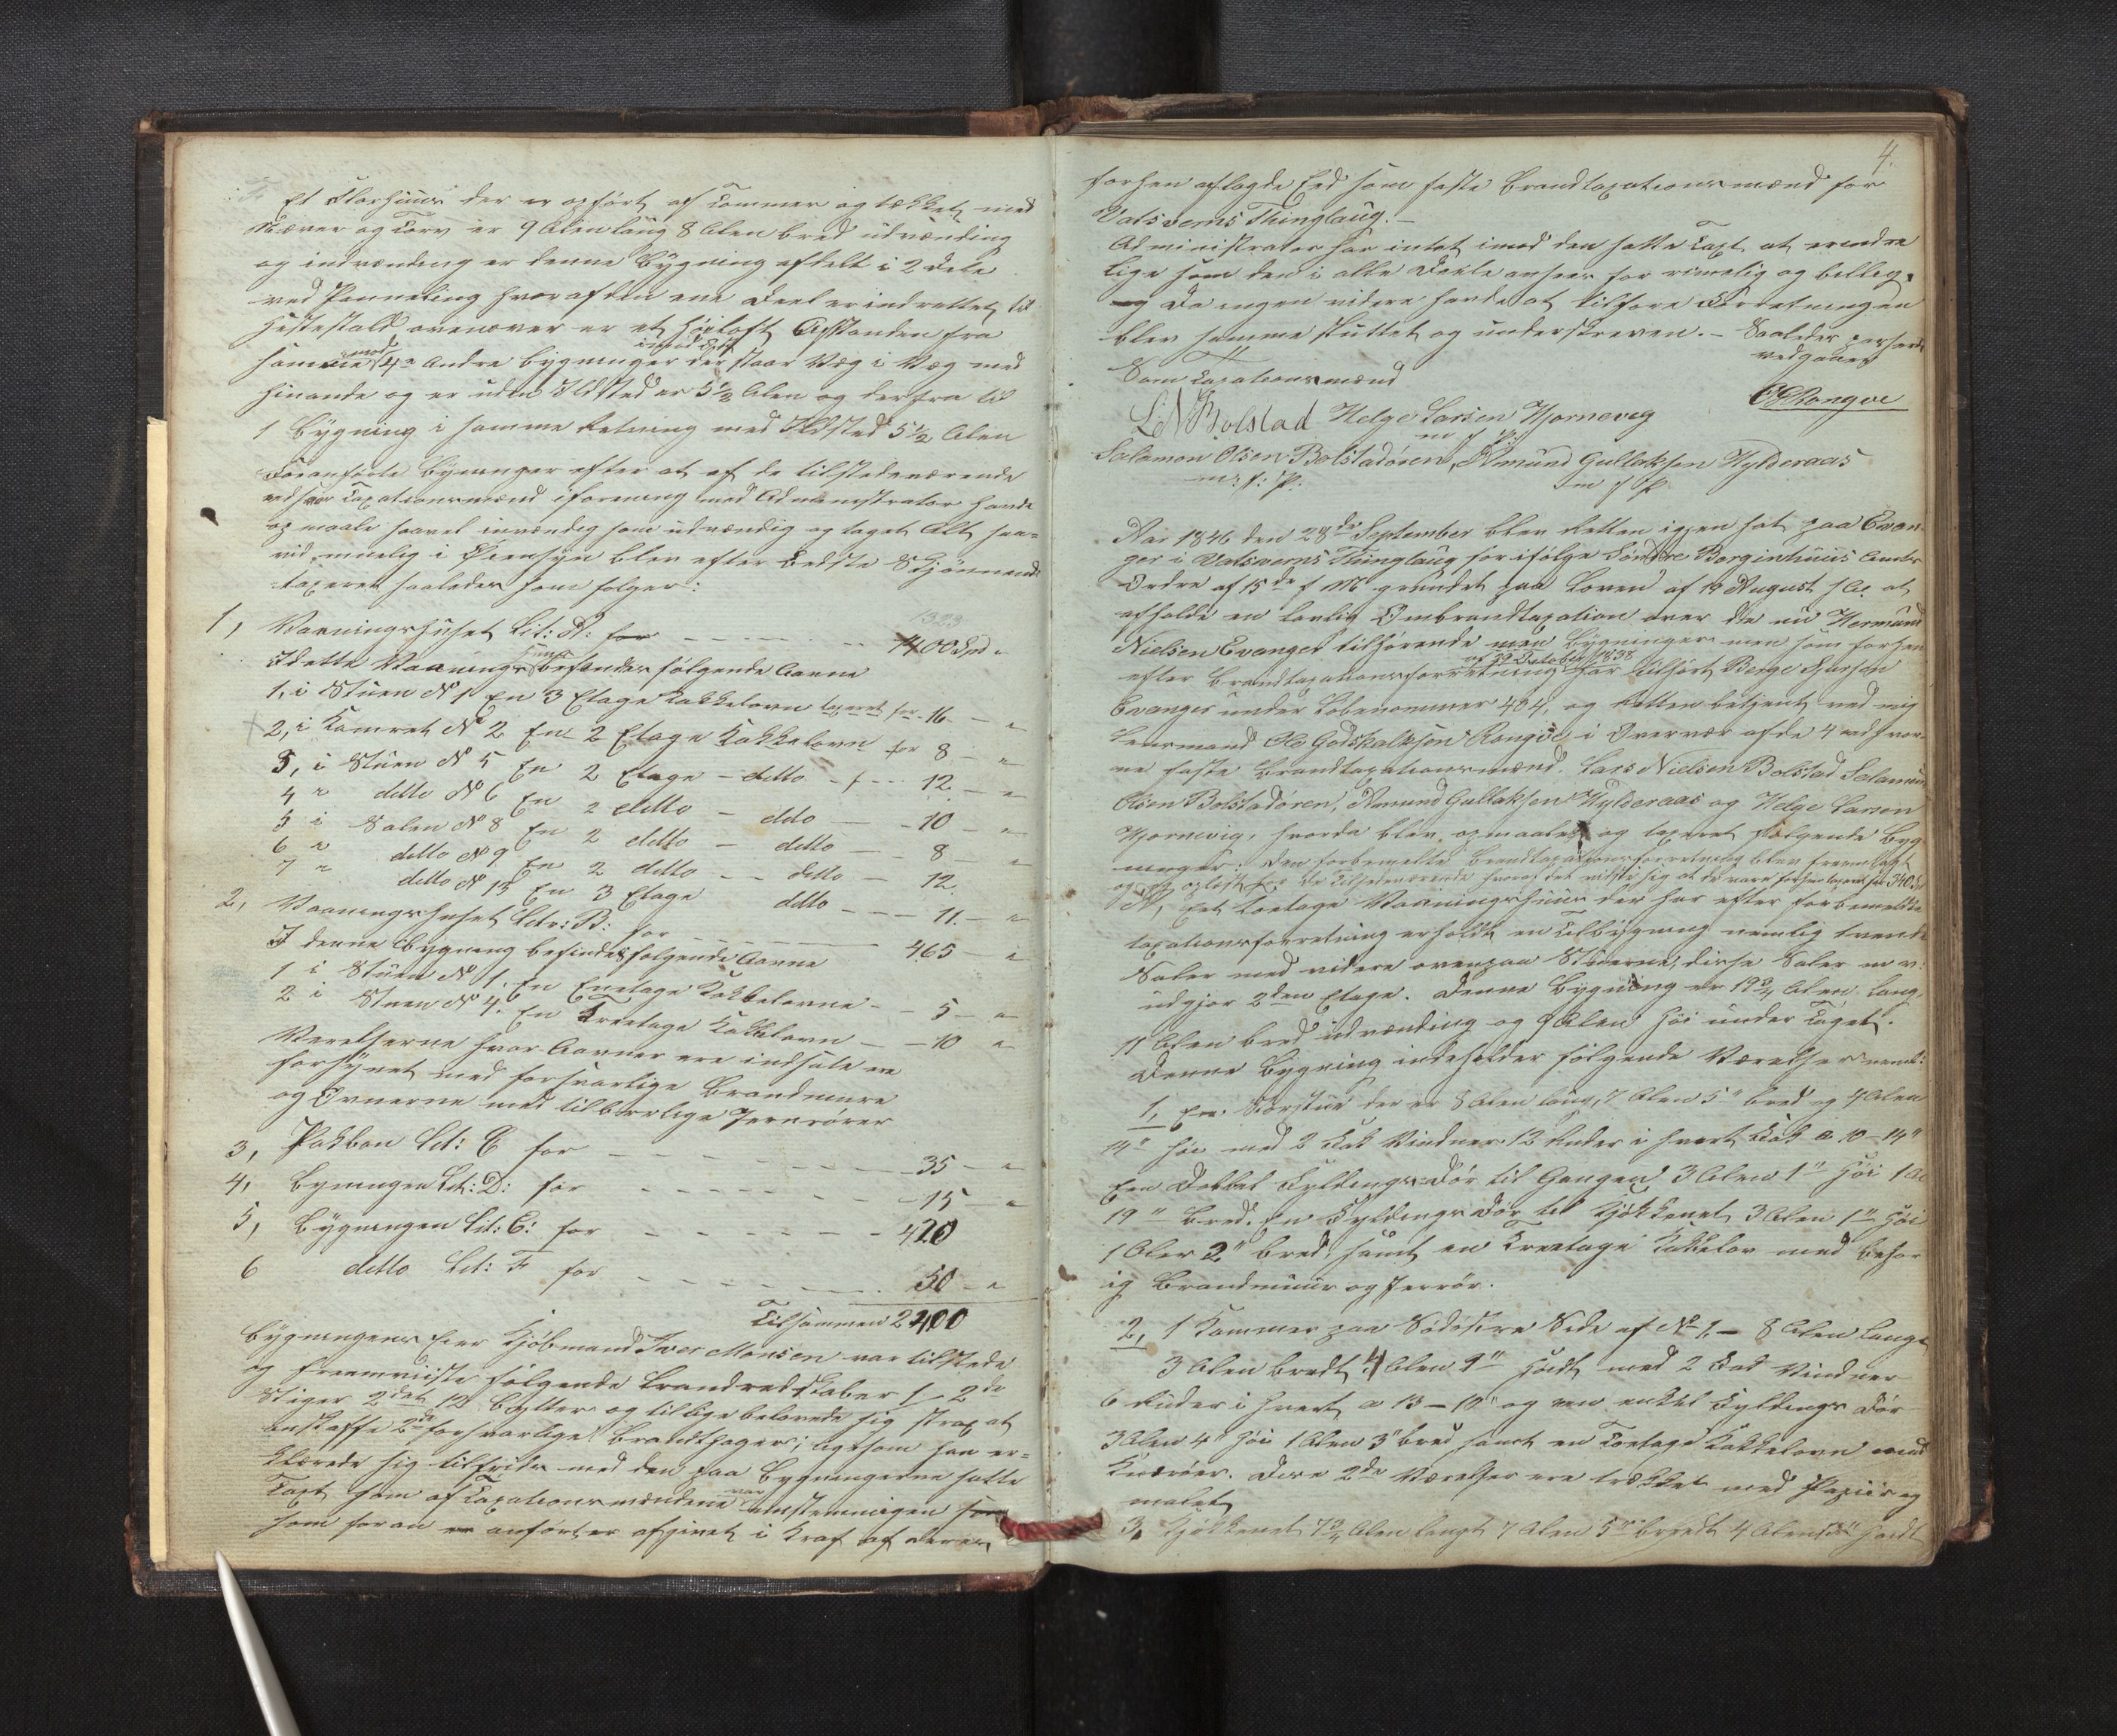 Et Florhuus der er opført af Tømmer og tækket med
Næver og Torv er 9 Alen lang 8 Alen bred udvænding
og indvænding er denne Bygning aftelt i 2 Dele
ved Panneling hvoraf den ene Deel er indrettet til
Hestestald ovenover er et Høeloft Afstanden fra
samme mod 4re Andre Bygninger der staar Væg i Væg med
hinande og er uden Ildsted er 5½ Alen og derfra til
1 Bygning i samme Retning med Ildsted 5½ Alen
Foranførte Byninger efter at af de tilstedeværende
Taxationsmænd iforening med Administrator havde
op maalt saavel invændig som udvændig og taget Alt saa-
vid muelig i Øiensyn blev efter bedste Skjønnend
taxeret saaledes som følger:
1, Vaaningshuset Lit: A: for - - - - 1400 Spd "
1323
I dette Vaanings huus befindes følgende Aavne
1, i Stuen No 1 En 3 Etage Kakkelovn taxeret for - 16 - "
2, i Kamret No 2 En 2 Etage Kakkelovn for 8 - "
3, i Stuen No 5 En 2 Etage - ditto - f - - - 12 - "
4 " ditto No 6 En 2 ditto - ditto - - 10 - "
5 i Salen No 8 En 2 ditto - ditto - - 8 - "
6 " ditto No 9 En 2 ditto - - ditto - 12.
7 " ditto No 13 En 3 Etage ditto - - - 11. - "
2, Vaaningshuset Litr: B: for - - - - 465 - "
I denne Bygning befindes følgende Aavne
1 i Stuen No 1. En Enetage Kakkelovne - - 5 - "
2 i Stuen No 4. En Treetage Kakkelovn - - 10 "
Værelserne hvor Aavner ere indsatte ere
forsynet med forsvarlige Brandmure
og Ovnerne med tilbørlige Jernrører
3, Pakboe Lit: C for - - - - 35 - "
4, Byningen Lit: D: for - - - - 15 - "
5, Bygningen Lit: E: for - - - - 420
6 ditto Lit: F for - - - - 50 - "
Tilsammen 2400
Bygningens Eier Kjøbmand Iver Monsen var tilstede
og fremviiste følgende Brandredskaber / 2de
Stiger 2det 12 Bøtter og tillige belovede sig strax at
anskaffe 2de forsvarlige Brandhager; ligesom han er-
klærede sig tilfreds med den paa Bygningerne satte
Taxt som af Taxationsmændene var enstemmigen
som foran er anført er afgivet i Kraf af deres
4.
forhen aflagde Eed som faste Brandtaxationsmænd for
Vatsverns Thinglaug. -
Administrator har intet imod den satte Taxt at erindre
lige som den i alle Deele ansees for rimelig og billig.
og Da ingen videre havde at tilføre Forretningen
blev samme sluttet og underskreven. - Saaledes passeret
vedgaaes
Som Taxationsmænd
OGRongve
L N Bolstad Helge Larsen Hjørnevig
m f P
Salamon Olsen Bolstadøren, Amund Gullaksen Hylderaas
m: f: P: m f P
Aar 1846 den 28de September blev Retten igjen sat paa Evan-
ger i Vatsverns Thinglaug for ifølge Søndre Bergenhuus Amts
Ordre af 15de f M grundet paa Loven af 19 August f A. at
afholde en lovlig Ombrandtaxation over de nu Hermund
Nielsen Evanger tilhørende Bygninger men som forhen
efter Brandtaxationsforretning af 22 October 1838 har tilhørt Berge Sjursen
Evanger under Løbenommer 484, og Retten betjent ved mig
Lensmand Ole Godskalksen Rongve i Overvær af de 4 edsvor-
ne faste Brandtaxationsmænd. Lars Nielsen Bolstad Salamon
Olsen Bolstadøren, Amund Gullaksen Hylderaas og Helge Larsen
Hjørnevig, hvorda blev opmaalet og taxeret følgende Byg-
ninger: den forbemelte Brandtaxationsforretning blev fremlagt
og oplæst for de Tilstedeværende hvoraf det viste sig at de vare forhen taxeret for 340 Spd
A, Eet toetage Vaaningshuus der har efter forbemeldte
taxationsforretning erholdt en Tilbygning nemlig trende
Saler med videre ovenpaa Stuerne, disse Saler m v:
udgjør 2den Etage. Denne Bygning er 19¾ Alen lang,
11 Alen bred udvænding og 9 Alen høi under Taget.
Denne Bygning indeholder følgende Værelser neml:
1, En Forstue der er 8 Alen lang, 7 Alen 5" bred og 4 Alen
14" høi med 2 Fak Vinduer 12 Ruder i hvert Fak a 10 - 14"
Een Dobbel Fyldings Dør til Gangen 3 Alen 1" høi 1 Al
19" bred. En Fyldings Dør til Kjøkkenet 3 Alen 1" høi
1 Alen 2" bred, samt en Treetage Kakkelov med behør-
ig Brandmuur og Jernrør.
2, 1 Kammer paa Sødøstre Side af No 1. - 8 Alen langt
3 Alen bredt 4 Alen 9" høidt med 2 Fak Vinduer
6 Ruder i hvert a 13 - 10" og een enkel Fyldings Dør
3 Alen 4" høi 1 Alen 3" bred samt en Toetage Kakkelovn med
Knærører. Disse 2de Værelser ere trækket med Papiir og
malet
3, Kjøkkenet 7¾ Alen langt 7 Alen 5" bredt 4 Alen høidt